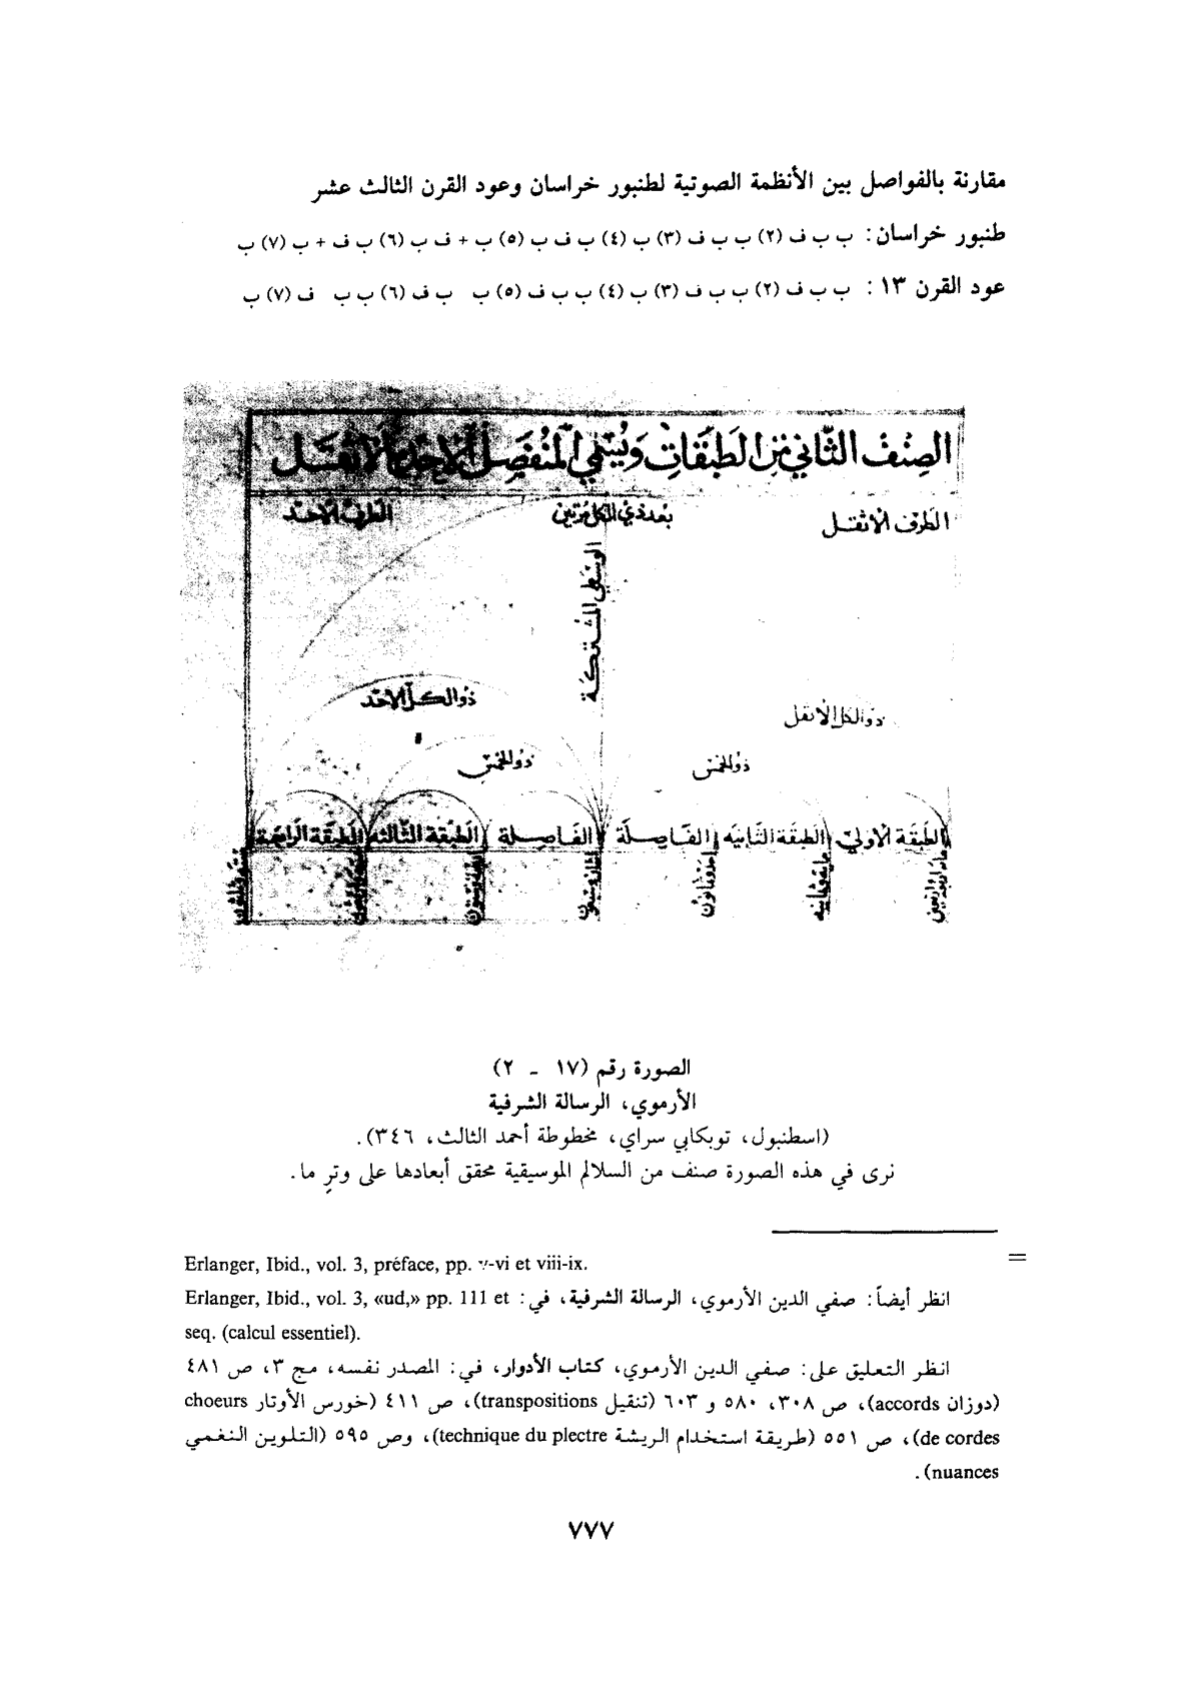 مقارنة بالفواصل بين الأنظمة الصوتية لطنبور خراسان وعود القرن الثالث عشر
طنبور خراسان : ب ب ف (٢) ب ب ف (٣) ب (٤) ب ف ب (٥) ب + ف ب (٦) ب ف + ب (٧) ب
عود القرن ١٣ : ب ب ف (٢) ب ب ف (٣) ب (٤) ب ب ف (٥) ب ب ف (٦) ب ب ف (٧) ب
الصنف الثاني من الطبقات ويسمى المنفصل الأحد والأثقل
الطرف الأثقل بعد ذي الكل مرتين الطرف الأحد
الوسطى المشتركة
ذو الكل الأحد
ذو الكل الأثقل
ذو الخمس ذو الخمس
الطبقة الأولى الطبقة الثانية الفاصلة الفاصلة الطبقة الثالثة الطبقة الرابعة
الصورة رقم (١٧ - ٢)
الأرموي، الرسالة الشرفية
(اسطنبول، توبكابي سراي، مخطوطة أحمد الثالث، ٣٤٦).
نرى في هذه الصورة صنف من السلالم الموسيقية محقق أبعادها على وترٍ ما.
= Erlanger, Ibid., vol. 3, préface, pp. v-vi et viii-ix.
انظر أيضاً: صفي الدين الأرموي، الرسالة الشرفية، في: Erlanger, Ibid., vol. 3, «ud,» pp. 111 et
seq. (calcul essentiel).
انظر التعليق على: صفي الدين الأرموي، كتاب الأدوار، في: المصدر نفسه، مج ٣، ص ٤٨١
(دوزان accords)، ص ٣٠٨، ٥٨٠ و ٦٠٣ (تنقيل transpositions)، ص ٤١١ (خورس الأوتار choeurs
de cordes)، ص ٥٥١ (طريقة استخدام الريشة technique du plectre)، وص ٥٩٥ (التلوين النغمي
nuances).
٧٧٧